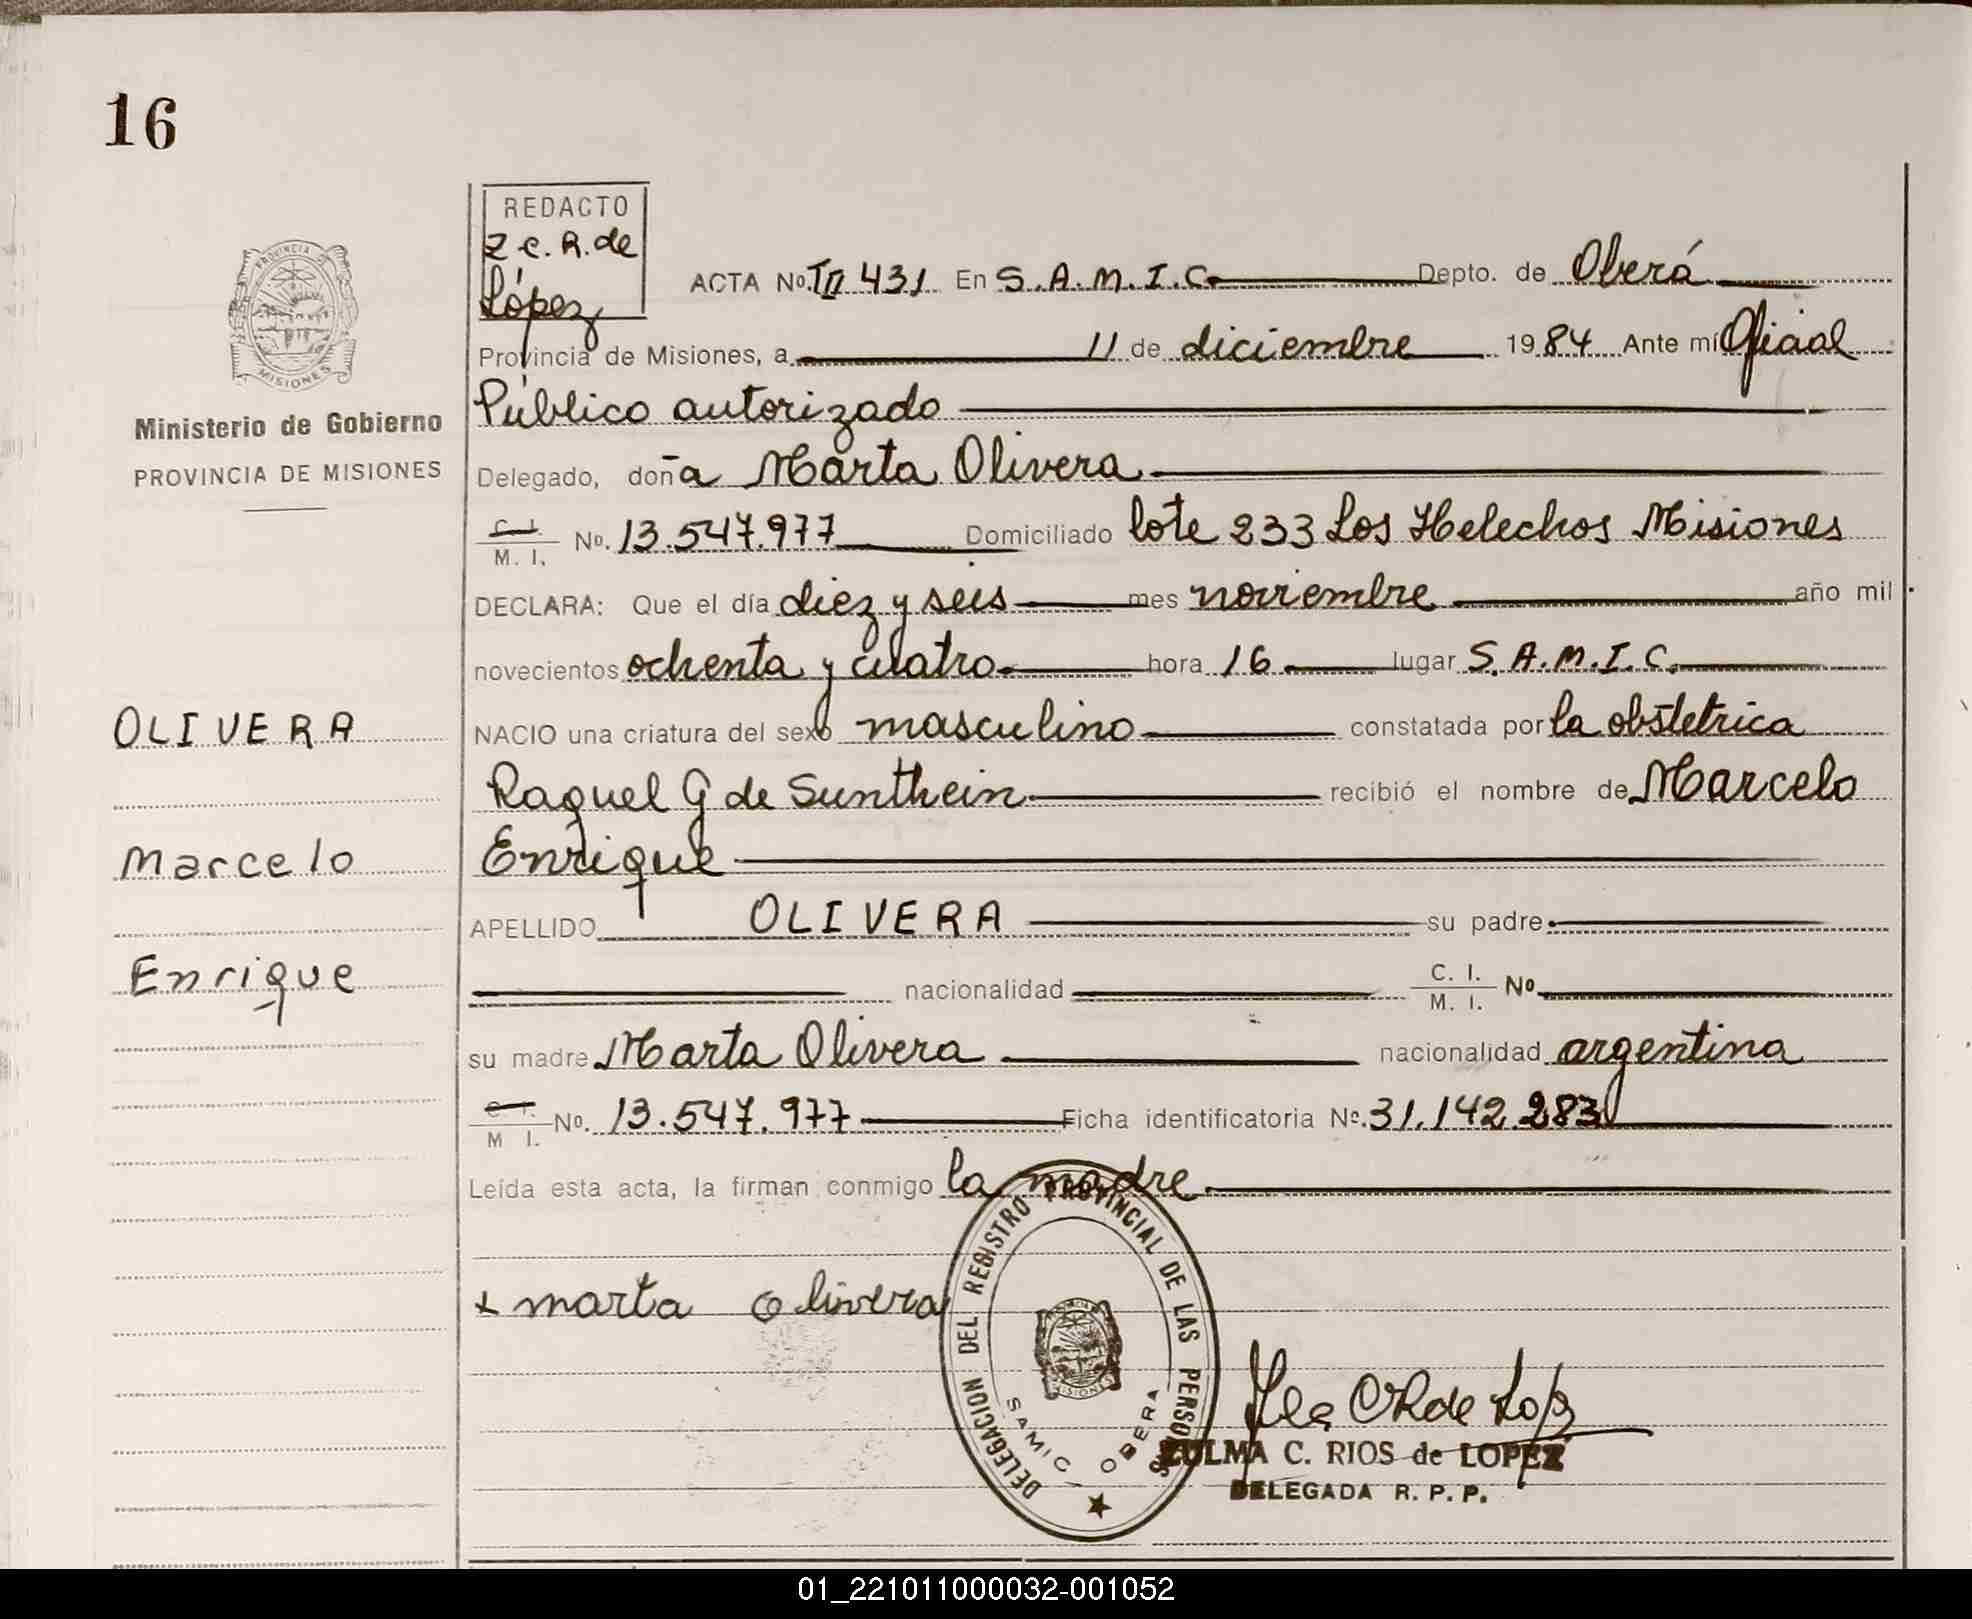 16
REDACTO
Z C. R. de
López
ACTA No. TII 431 En S. A. M. I. C. Depto. de Oberá
Provincia de Misiones, a 11 de diciembre 1984 Ante mí Oficial
Público autorizado
Delegado, doña Marta Olivera
C. I. / M. I. No. 13.547.977 Domiciliado lote 233 Los Helechos Misiones
DECLARA: Que el día diez y seis mes noviembre año mil
novecientos ochenta y cuatro hora 16 lugar S. A. M. I. C.
NACIO una criatura del sexo masculino constatada por la obstetrica
Raquel G de Sunthein recibió el nombre de Marcelo
Enrique
APELLIDO OLIVERA su padre
nacionalidad C. I. / M. I. No
su madre Marta Olivera nacionalidad argentina
C. I. / M I. No. 13.547.977 Ficha identificatoria No. 31.142.283
Leída esta acta, la firman conmigo la madre
x marta olivera
PROVINCIA DE
MISIONES
Ministerio de Gobierno
PROVINCIA DE MISIONES
OLIVERA
Marcelo
Enrique
DELEGACION DEL REGISTRO PROVINCIAL DE LAS PERSONAS
MISIONES
SAMIC OBERA
ZULMA C. RIOS de LOPEZ
DELEGADA R. P. P.
01_221011000032-001052